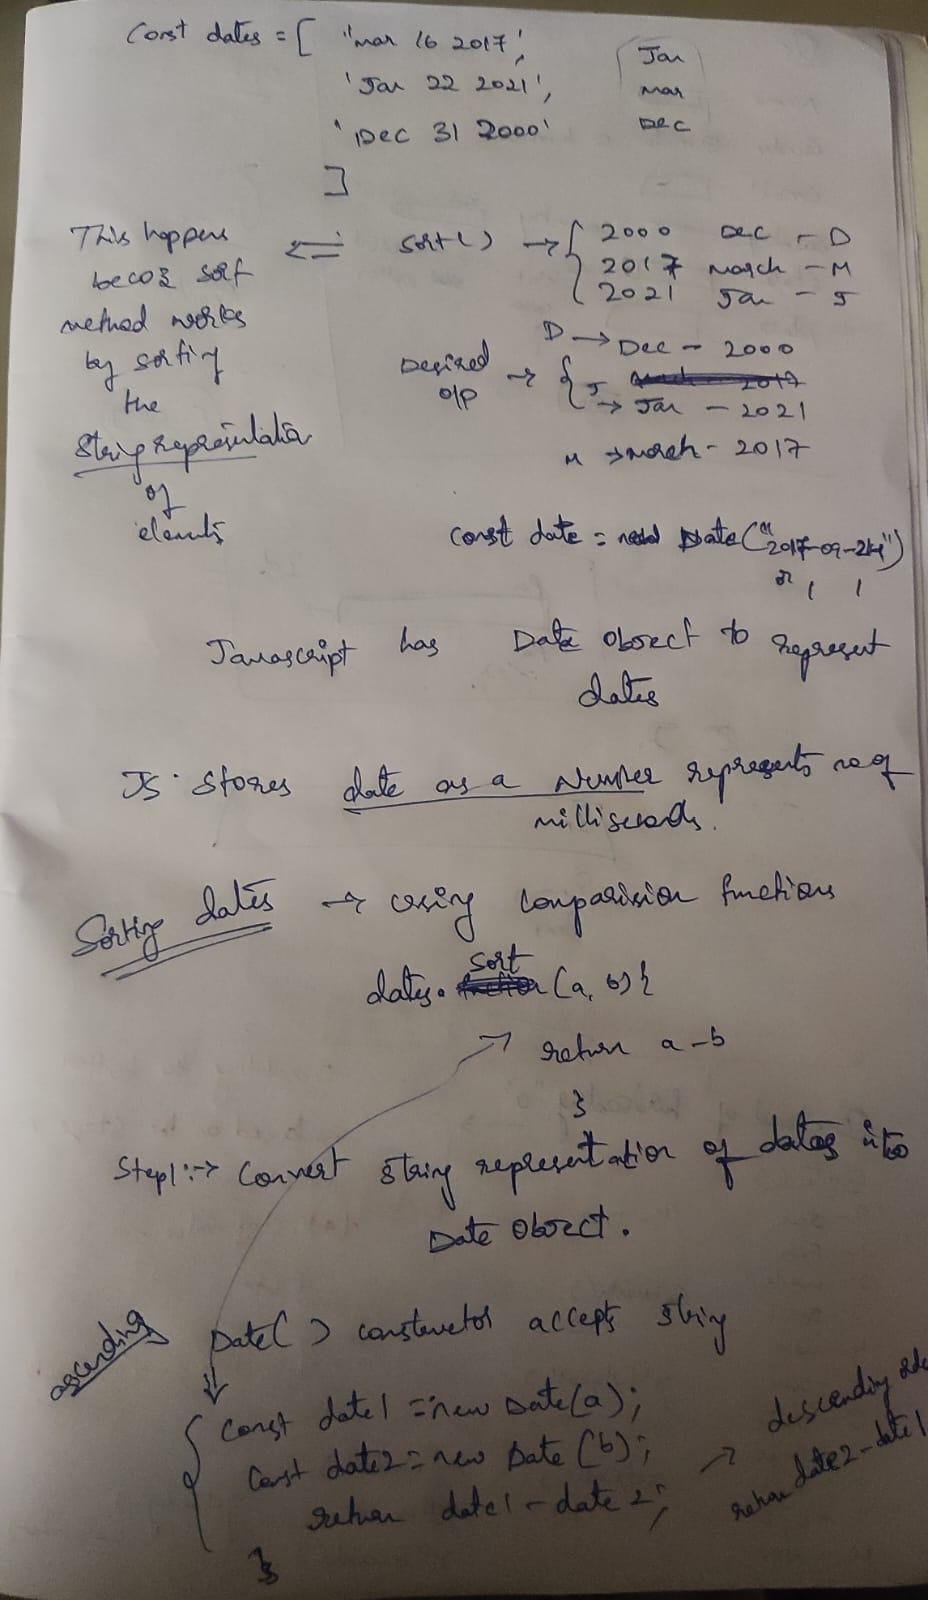 Const dates = [ "mar 16 2017',
'Jan 22 2021',
'Dec 31 2000'
]
Jan
mar
Dec
This happens
becoz sort
method works
by sorting
the
String representation
of
elements
<= sort() → { 2000 Dec - D
2017 march - M
2021 Jan - J
Desired
o/p → {
D → Dec - 2000
March - 2017
J → Jan - 2021
M → march - 2017
const date = new Date("2017-09-24")
or , ,
Javascript has Date Object to represent
dates
JS stores date as a number represents no of
milliseconds.
Sorting dates → using comparision functions
dates. sort (a, b) {
return a - b
}
Step1:→ Convert string representation of dates into
Date Object.
ascending
Date() constructor accepts string
{ const date1 = new Date(a);
Const date2 = new Date (b);
return date1 - date2;
}
→ descending
return date2 - date1